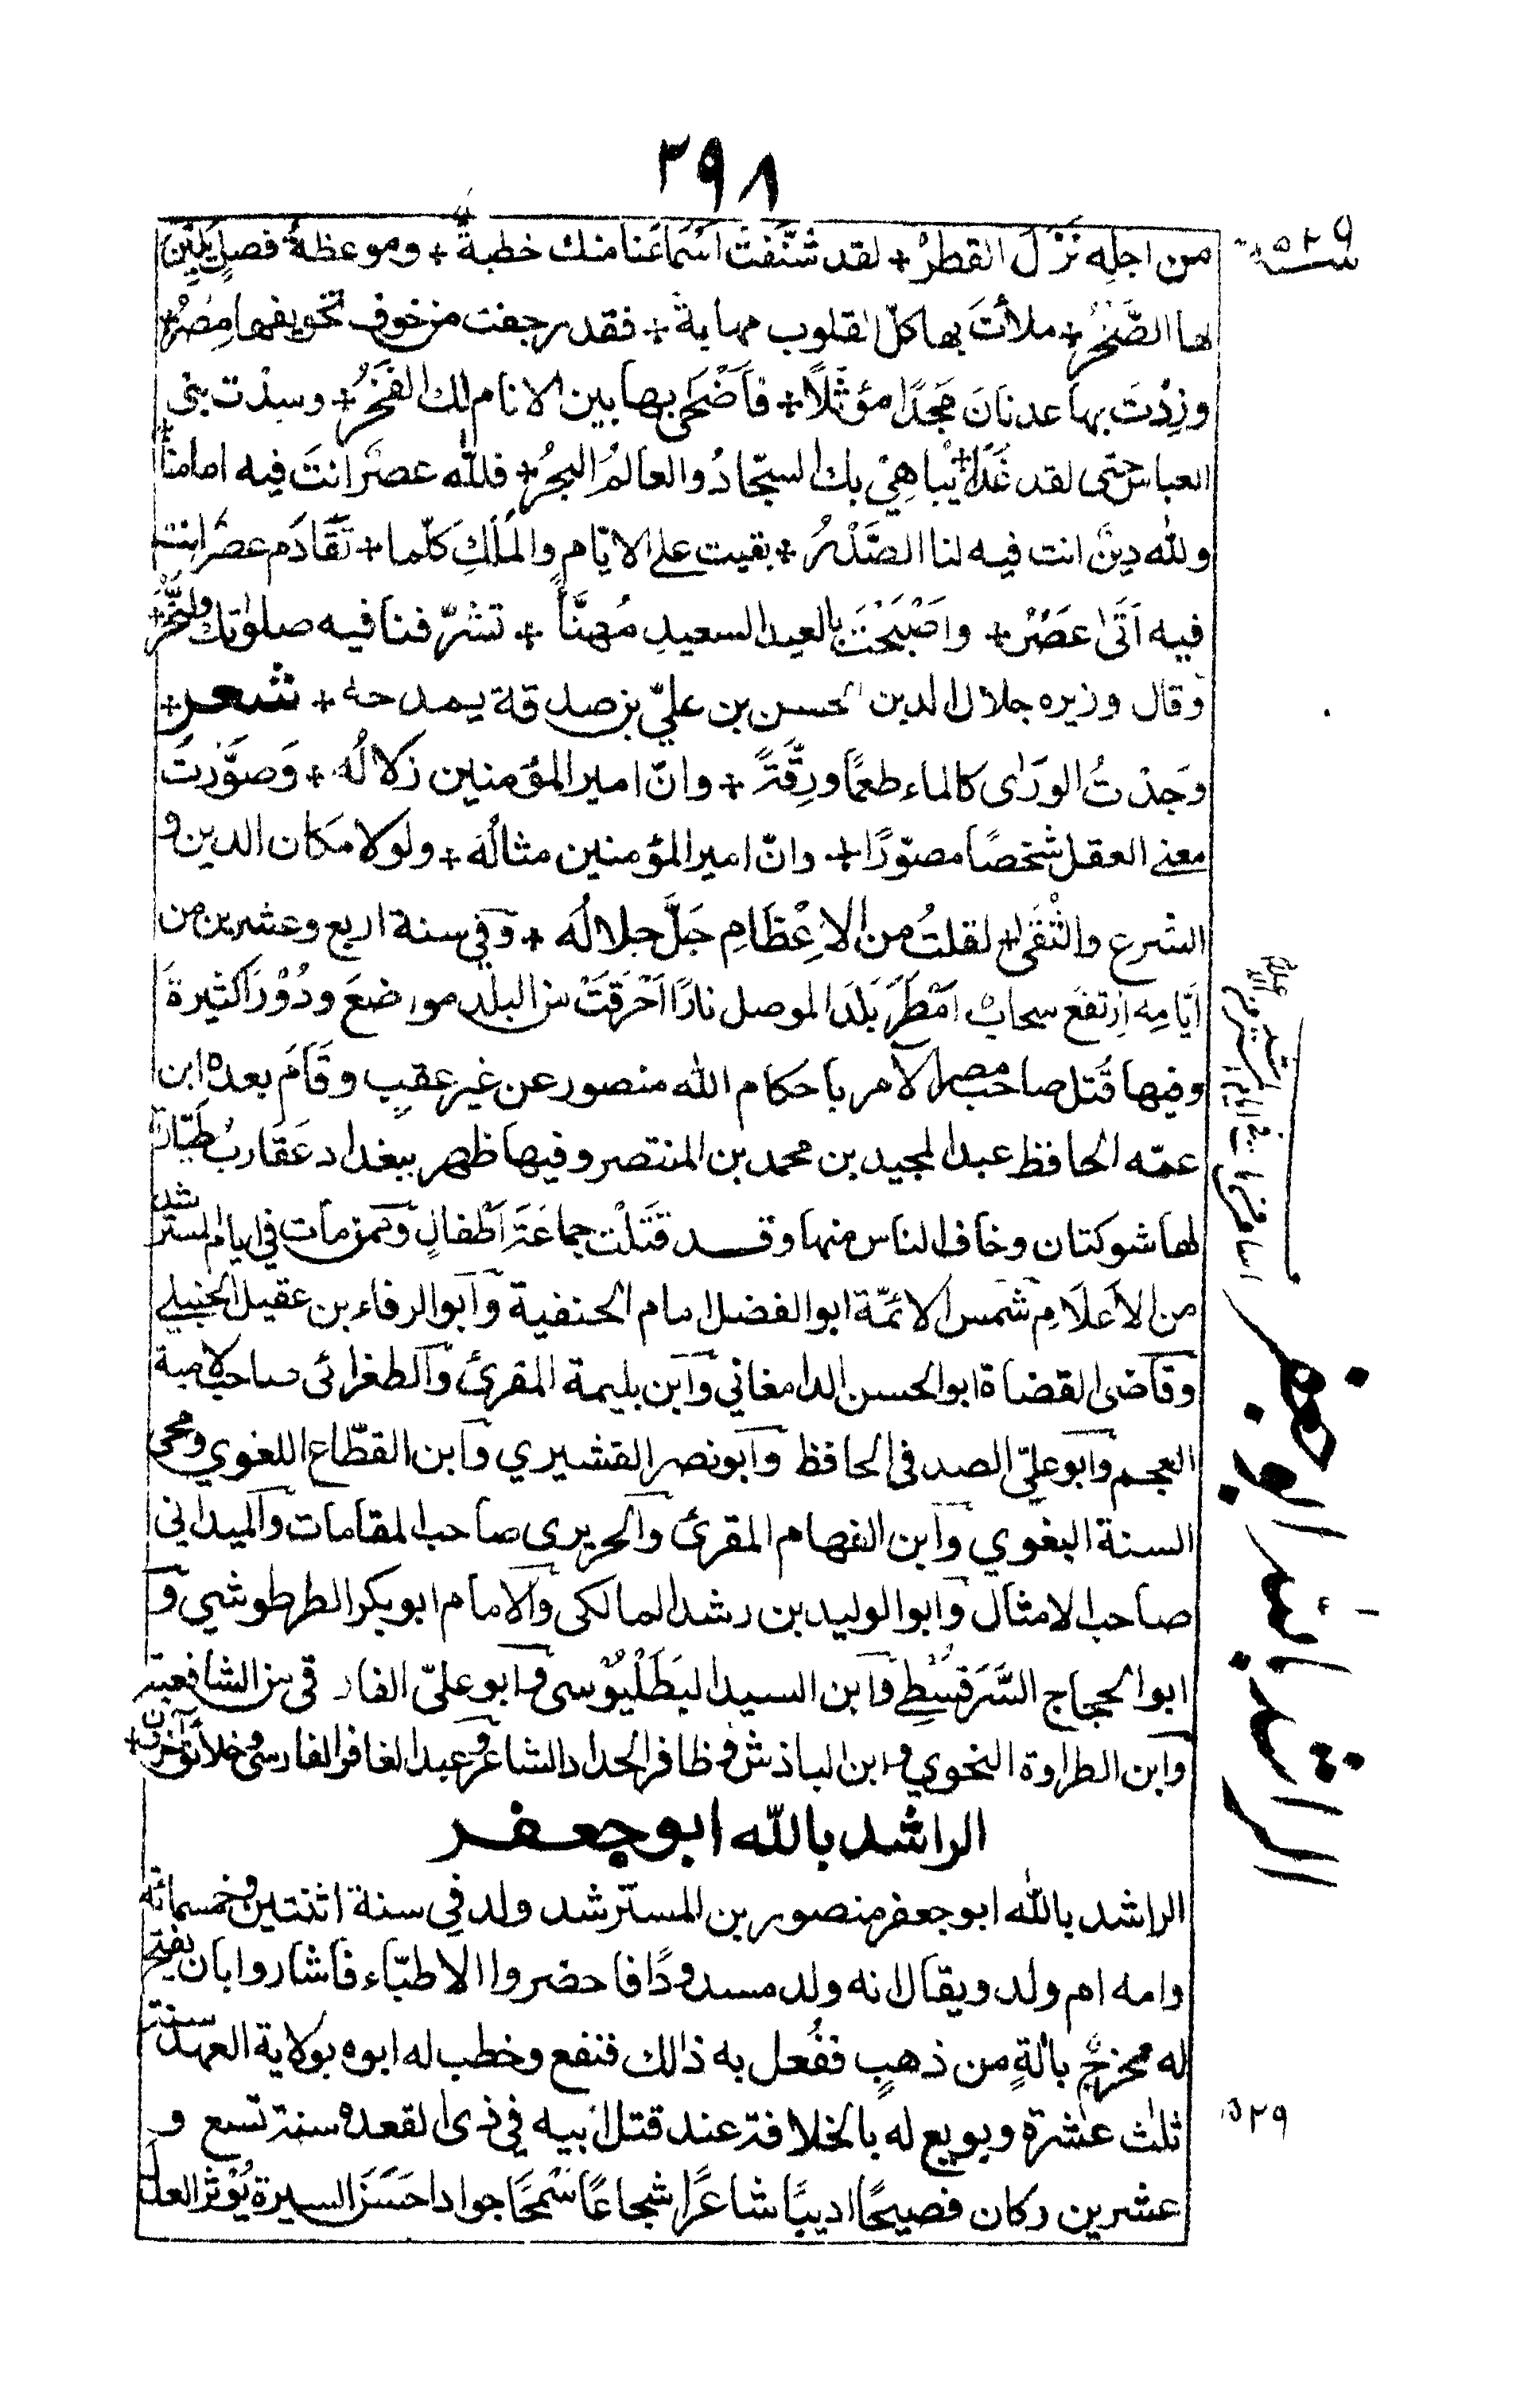 ٢٩٨
سنة ٥٢٩
من اجلِه نَزَلَ القطرُ + لقد شنّفتَ اَسْمَاعَنا منك خطبةً + وموعظةً فصلٍ يَلِيْنُ
لها الصَّخْرُ + ملأتَ بها كلّ القلوب مهابةً + فقد رجفت من خوف تخويفها مِصْرُ +
وزِدْتَ بها عدنانَ مَجدًا مؤثّلاً + فاَضْحٰى بها بين الانام لك الفَخْرُ + وسدْت بنى
العباس حتى لقد غَدَا + يُباهِيْ بك السجّادُ والعالمُ البحرُ + فللّه عصرٌ انتَ فيه امامنا +
وللّه دينٌ انت فيه لنا الصَّدْرُ + بقيت على الايّام والمُلْكِ كلّما + تَقَادَم عصرٌ انت
فيه اَتٰى عَصْرٌ + واَصْبَحْتَ بالعيد السعيدِ مُهنّأً + تشرّفنا فيه صلوٰتك والنَّحْرُ +
وقال وزيره جلال الدين الحسن بن عليّ بن صدقة يمدحه + شعر +
وَجدْتُ الورٰى كالماء طعمًا ورِقّةً + وانّ امير المؤمنين زلالُه + وَصوَّرْتُ
معنى العقل شخصًا مصوّرًا + وانّ امير المؤمنين مثالُه + ولولا مكان الدين و
الشرع والتُّقٰى + لقلتُ من الاِعْظَامِ جَلَّ جلالُه + وفي سنة اربع وعشرين من
اَيّامِه اِرتفعَ سحابٌ اَمْطَرَ بَلَدَ الموصل نارًا اَحْرَقَتْ من البلد مواضعَ ودُوْرًا كثيرةً
وفيها قُتل صاحب مصر الامر باحكام الله منصور عن غير عقبٍ وقَامَ بعده ابن
عمّه الحافظ عبد المجيد بن محمد بن المنتصر وفيها ظهر ببغداد عَقَاربُ طيّارة
لها شوكتان وخاف الناس منها وقد قَتَلَتْ جماعَةَ اَطْفالٍ وممن مات في ايام المسترشد
من الاَعلَامِ شمس الائمّة ابو الفضل امام الحنفية وابو الرفاء بن عقيل الحنبلي
وقاضى القضاة ابو الحسن الدامغاني وابن بليمة المقرئ والطغرائى صاحب لامية
العجم وابو عليّ الصدفى الحافظ وابو نصر القشيري وابن القطّاع اللغوي ومحى
السنة البغوي وابن الفهام المقرئ والحريرى صاحب المقامات والميدانى
صاحب الامثال وابو الوليد بن رشد المالكى والامام ابو بكر الطرطوشي و
ابو الحجاج السَّرَقُسْطِي وابن السيد البَطَلْيَوْسى وابو عليّ الفارقى من الشافعية
وابن الطراوة النحوي وابن الباذش وظافر الحداد الشاعر وعبد الغافر الفارسى وخلائق آخرون +
الراشد بالله ابو جعفر
الراشد بالله ابو جعفر منصور بن المسترشد ولد في سنة اثنتين وخمسمائة
وامه ام ولد ويقال انه ولد مسدودًا فاحضروا الاطبّاء فاشاروا بان يفتح
له مخرجٌ بالةٍ من ذهبٍ ففُعل به ذالك فنفع وخطب له ابوه بولاية العهد سنة
ثلث عشرة وبويع له بالخلافة عند قتل ابيه في ذى القعدة سنة تسع و
عشرين وكان فصيحًا اديبًا شاعرًا شجاعًا سَمْحًا جوادا حَسَنَ السيرة يُوْثر العدل
الراشد بالله ابو جعفر
٥٢٩